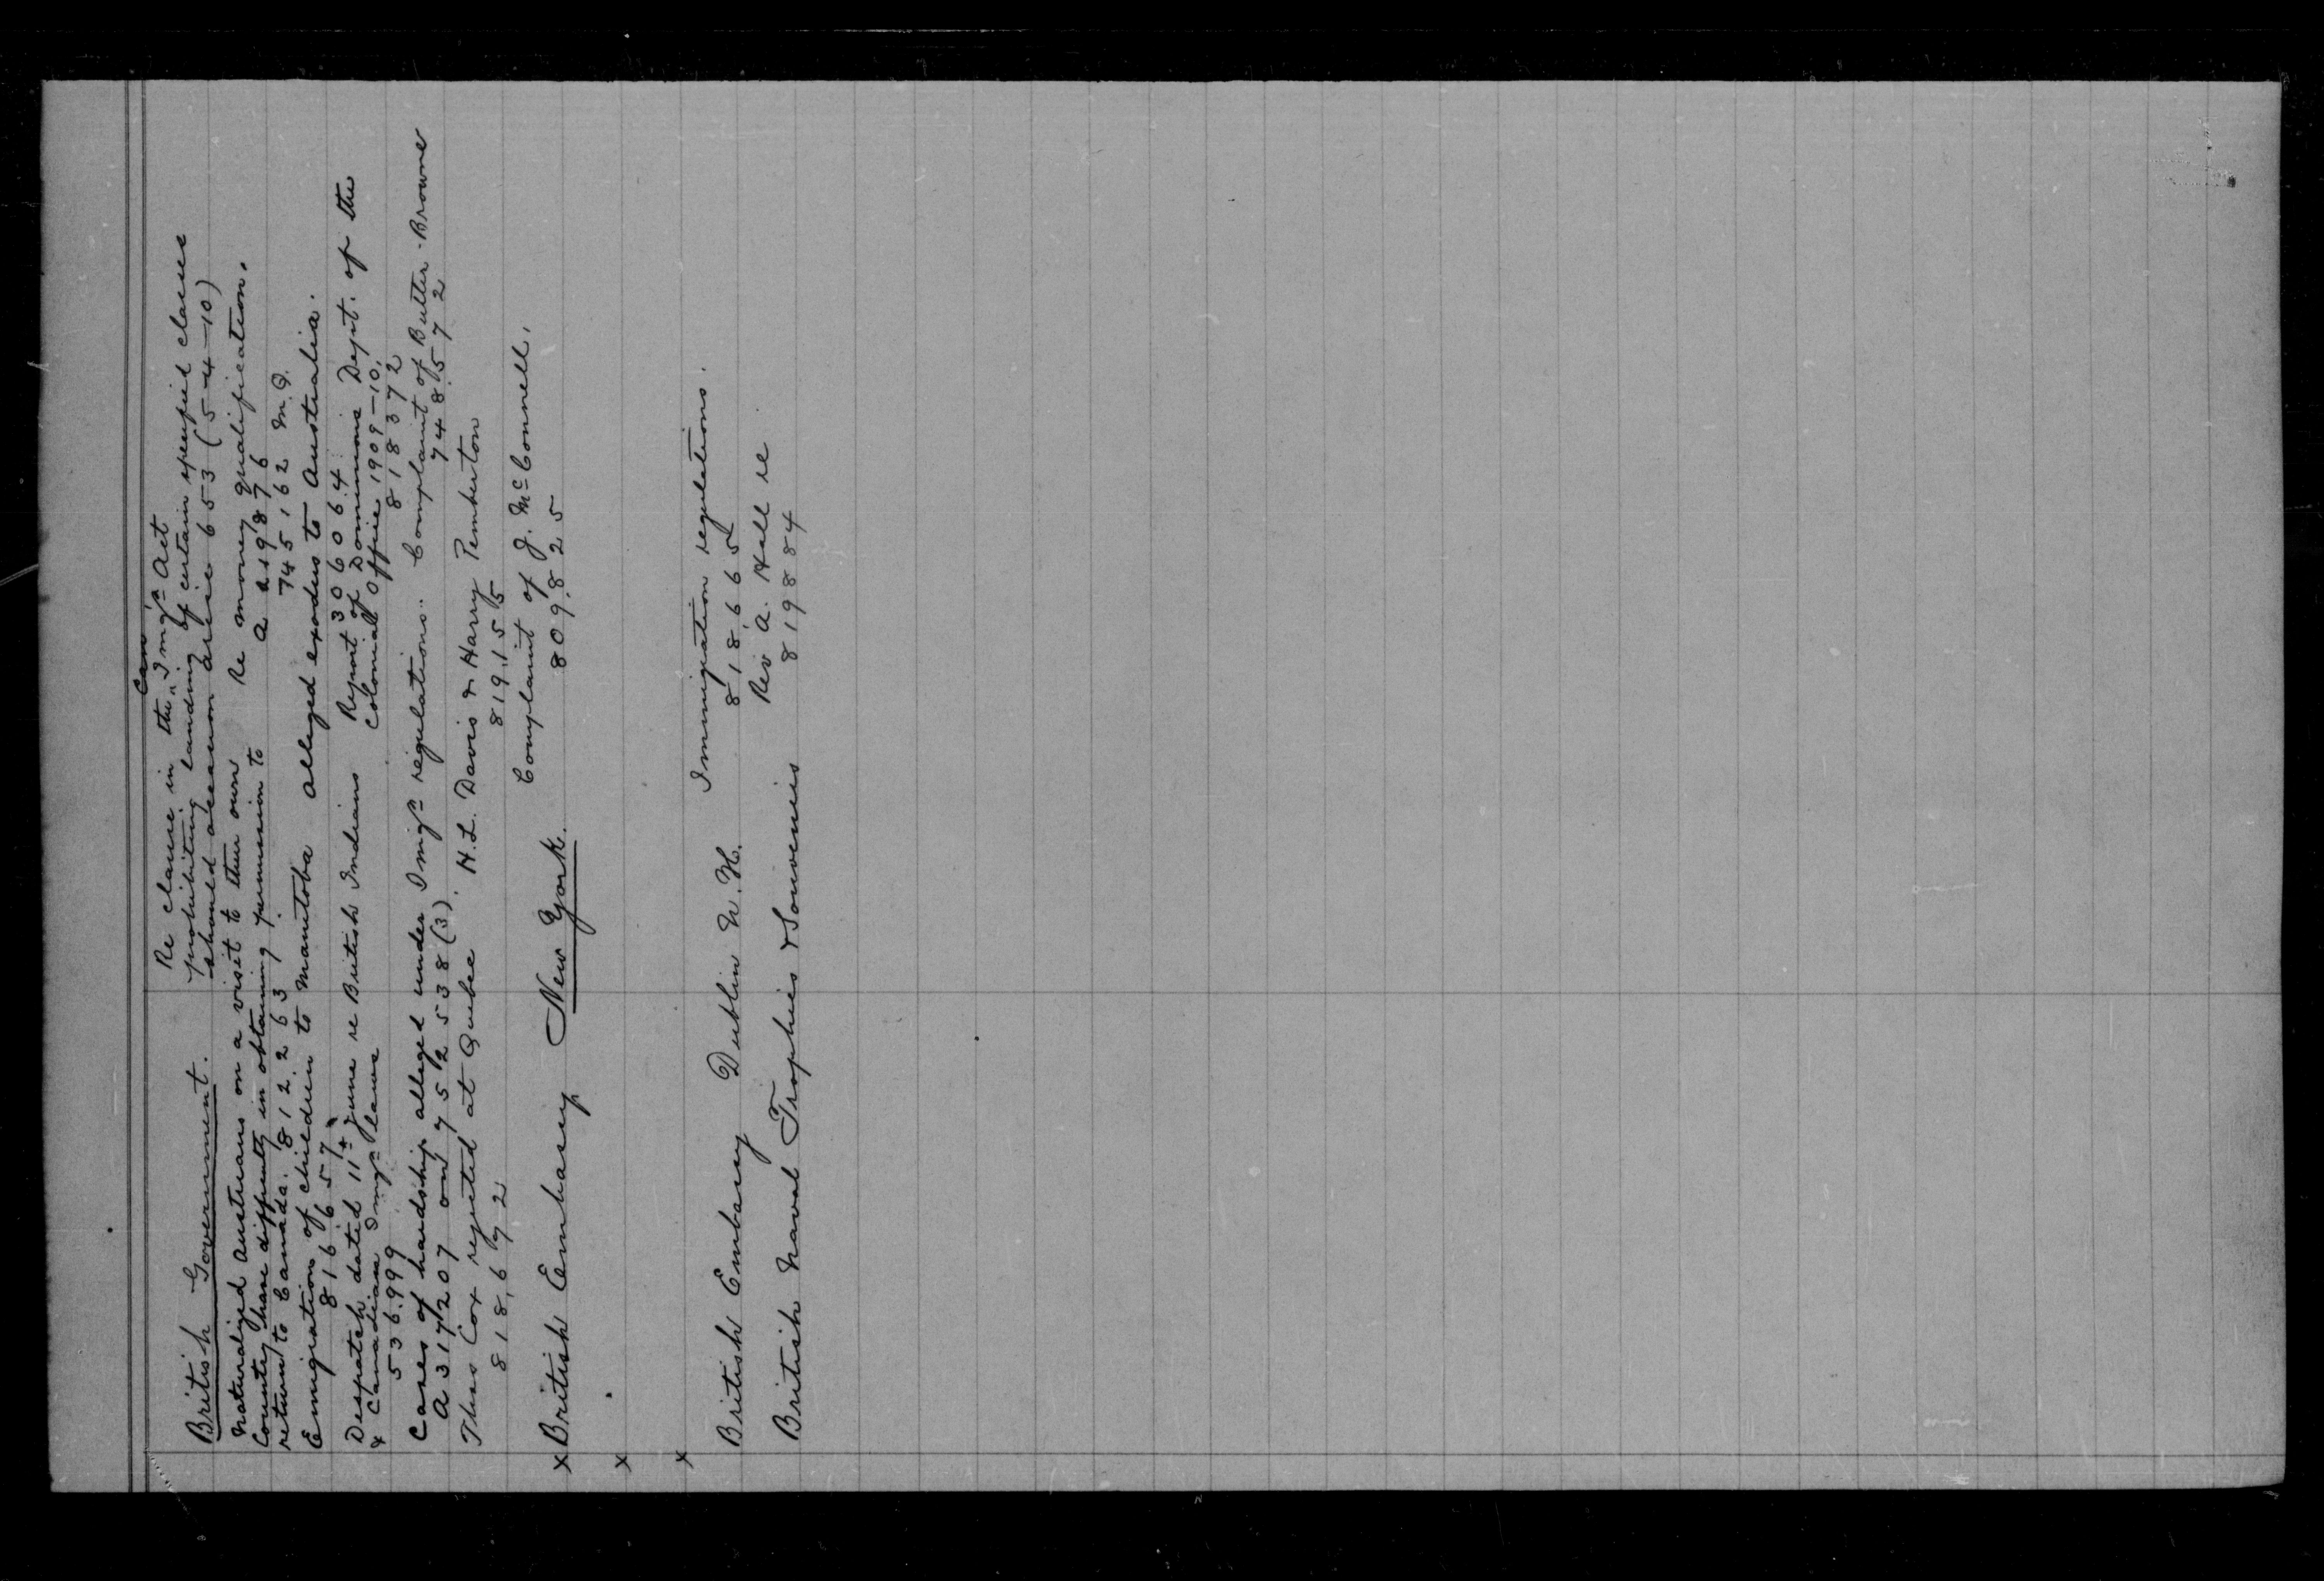 British Government. Re clause in the Can. Imgn Act
prohibiting landing of certain specified classes
should accession arise 653 (5-4-10)
Naturalized Austrians on a visit to their own Re money qualification.
Country have difficulty in obtaining permission to A 219876
return to Canada. 812263. 745162 M.Q.
Emigration of children to Manitoba alleged exodus to Australia.
816657 306064
Despatch dated 11th June re British Indians Report of Dominions Dept. of the
& Canadian Imgn laws Colonial Office 1909-10.
536999 818372
Cases of hardship alleged under Imgn regulations. Complaint of Butter-Browne
A 317207 on 752538 (3). 748572
Thos Cox rejected at Quebec H.L. Davis & Harry Pemberton
818672 819155
x British Embassy New York. Complaint of J. McConnell,
809825
x
x
British Embassy Dublin N.H. Immigration regulations.
818665
British Naval Trophies & Souvenirs Rev A. Hall re
819884